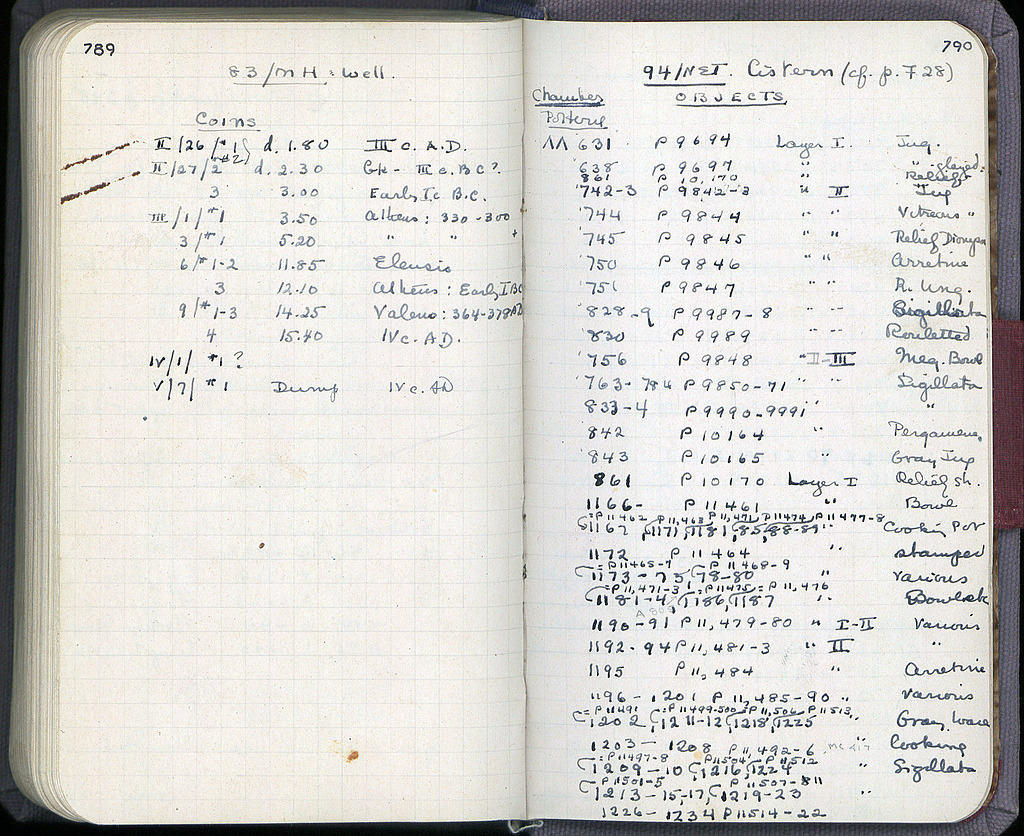 789
83/ΜΗ : Well.
Coins
II/26/#1 d. 1.80 III c. A.D.
#2
II/27/2 d. 2.30 Gk - III c. B.C?
3 3.00 Early I c. B.C.
III/1/#1 3.50 Athens: 330-300
3/#1 5.20 " " "
6/#1-2 11.85 Eleusis
3 12.10 Athens: Early I BC
9/#1-3 14.25 Valens: 364-378 AD
4 15.40 IV c. AD.
IV/1/#1?
V/7/#1 Dump IV c. AD
790
94/ΝΣΤ. Cistern (cf. p. 728)
Chamber OBJECTS
Pottery
ΛΛ 631 P 9694 Layer I. Jug.
638 P 9697 " " glazed.
861 P 10,170 " Relief
742-3 P 9842-3 " II Jug
744 P 9844 " " Vitreous "
745 P 9845 " " Relief Dionysos
750 P 9846 " " Arretine
751 P 9847 " " R. Ung.
828-9 P 9987-8 " " Sigillata
830 P 9989 " " Rouletted
756 P 9848 " II-III Meg. Bowl
763-784 P 9850-71 " " Sigillata
833-4 P 9990-9991 " "
842 P 10164 " Pergamene.
843 P 10165 " Gray Jug
861 P 10170 Layer I Relief sh.
1166- P 11461 " Bowl
=P 11462 P 11,463 P 11,471 P 11474 P 11477-8
1167, 1171, 1181, 85, 88-89 " Cooking Pot
1172 P 11464 " stamped
=P 11465-7 P 11468-9
1173-75, 78-80 " Various
=P 11,471-3 =P 11475 = P 11,476
1181-4, 1186, 1187 " Bowls etc
1190-91 P 11,479-80 " I-II Various
1192-94 P 11,481-3 " II "
1195 P 11,484 " Arretine
1196-1201 P 11,485-90 " Various
=P 11491 =P 11499-500 =P 11,506 P 11513
1202, 1211-12, 1218, 1225 " Gray Ware
1203-1208 P 11,492-6 " Cooking
=P 11497-8 P 11504 P 11512
1209-10, 1216, 1224 " Sigillata
P 11501-5 P 11507-811
1213-15-17, 1219-23 "
1226-1234 P 11514-22